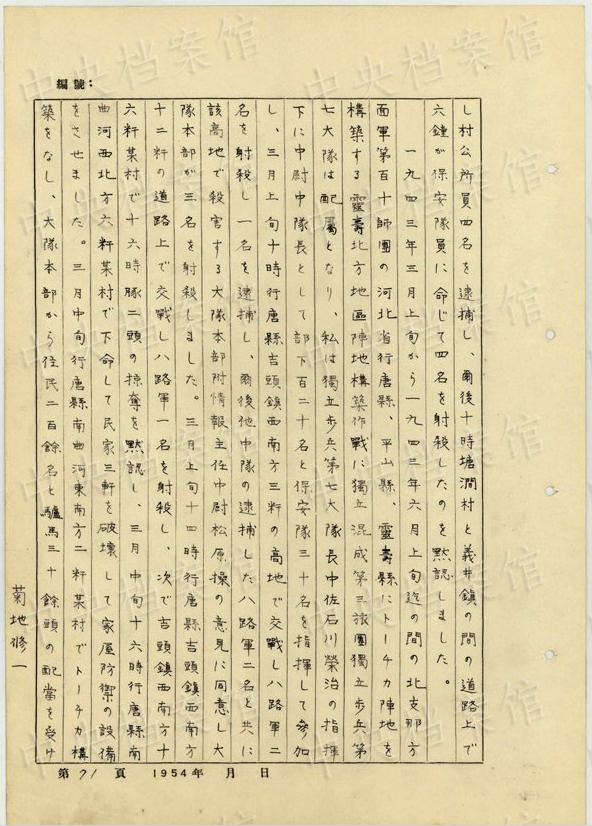 編號：
し村公所員四名を逮捕し、爾後十時塘澗村と義井鎮の間の道路上で
六鍾が保安隊員に命じて四名を射殺したのを黙認しました。
一九四三年三月上旬から一九四三年六月上旬迄の間の北支那方
面軍第百十師團の河北省行唐縣、平山縣、靈壽縣にトーチカ陣地を
構築する靈壽北方地區陣地構築作戰に獨立混成第三旅團獨立歩兵第
七大隊は配属となり、私は獨立歩兵第七大隊長中佐石川榮治の指揮
下に中尉中隊長として部下百二十名と保安隊三十名を指揮して参加
し、三月上旬十時行唐縣吉頭鎮西南方三粁の高地で交戰し八路軍二
名を射殺し一名を逮捕し、爾後他中隊の逮捕した八路軍二名と共に
該高地で殺害する大隊本部附情報主任中尉松原操の意見に同意し大
隊本部が三名を射殺しました。三月上旬十四時行唐縣吉頭鎮西南方
十二粁の道路上で交戰し八路軍一名を射殺し、次で吉頭鎮西南方十
六粁某村で十六時豚二頭の掠奪を黙認し、三月中旬十六時行唐縣南
曲河西北方六粁某村で下命して民家三軒を破壊して家屋防禦の設備
をさせました。三月中旬行唐縣南曲河東南方二粁某村でトーチカ構
築をなし、大隊本部から住民二百餘名と驢馬三十餘頭の配當を受け
菊地修一
第71頁 1954年 月 日
中央档案馆